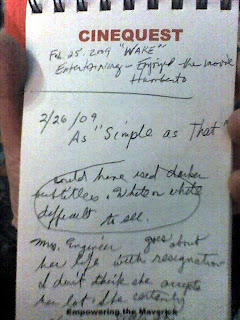 CINEQUEST
Feb. 25. 2009 "WAKE"
Entertaining - Enjoyed the movie
Humberto
2/26/09
As "Simple as That"
Could have used darker
subtitles. White on white
difficult to see.
Mrs. Engineer goes about
her life with resignation
I don't think she accepts
her lot. She certainly
Empowering the Maverick